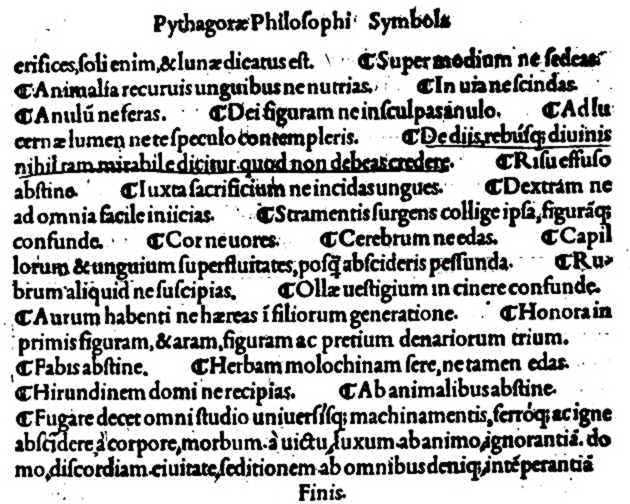 Pythagoræ Philosophi Symbola
erifices, soli enim, & lunæ dicatus est. ¶ Super modium ne sedeas.
¶ Animalia recuruis unguibus ne nutrias. ¶ In uia ne scindas.
¶ Anulũ ne feras. ¶ Dei figuram ne insculpas ánulo. ¶ Ad lu
cernæ lumen ne te speculo contempleris. ¶ De diis, rebúsq; diuinis
nihil tam mirabile dicitur quod non debeas credere. ¶ Risu effuso
abstine. ¶ Iuxta sacrificium ne incidas ungues. ¶ Dextram ne
ad omnia facile iniicias. ¶ Stramentis surgens collige ipsa, figurãq;
confunde. ¶ Cor ne uores. ¶ Cerebrum ne edas. ¶ Capil
lorum & unguium superfluitates, posq̃ abscideris pessunda. ¶ Ru-
brum aliquid ne suscipias. ¶ Ollæ uestigium in cinere confunde.
¶ Aurum habenti ne hæreas ĩ filiorum generatione. ¶ Honora in
primis figuram, & aram, figuram ac pretium denariorum trium.
¶ Fabis abstine. ¶ Herbam molochinam sere, ne tamen edas.
¶ Hirundinem domi ne recipias. ¶ Ab animalibus abstine.
¶ Fugare decet omni studio uniuersisq; machinamentis, ferróq; ac igne
abscidere, à corpore, morbum. à uictu, luxum. ab animo, ignorantiã. do
mo, discordiam. ciuitate, seditionem. ab omnibus deniq;, intẽperantiã
Finis.